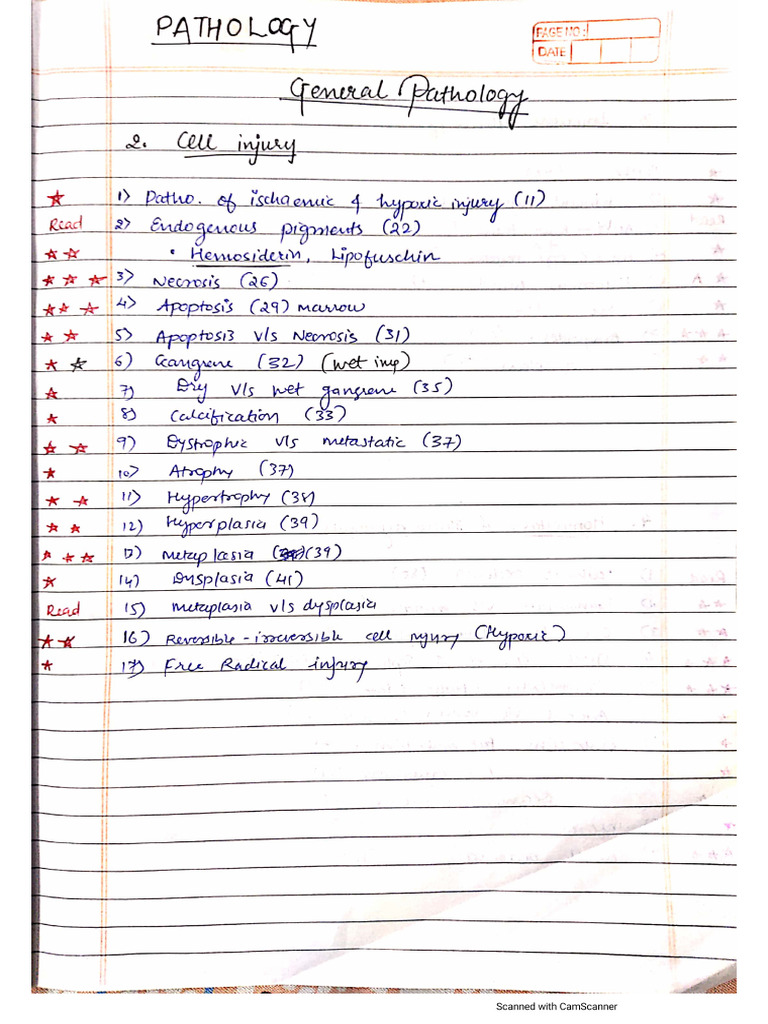 PATHOLOGY
PAGE NO:
DATE
General Pathology
2. Cell injury
★ 1) Patho. of ischaemic & hypoxic injury (11)
Read 2) Endogenous pigments (22)
★★ • Hemosiderin, Lipofuschin
★★★ 3) Necrosis (26)
★★★ 4) Apoptosis (29) marrow
★★ 5) Apoptosis v/s Necrosis (31)
★★ 6) Gangrene (32) (wet imp)
★ 7) Dry v/s wet gangrene (35)
★ 8) Calcification (33)
★★ 9) Dystrophic v/s metastatic (37)
★ 10) Atrophy (37)
★★ 11) Hypertrophy (38)
★★ 12) Hyperplasia (39)
★★★ 13) metaplasia (39)
★ 14) Dysplasia (41)
Read 15) metaplasia v/s dysplasia
★★ 16) Reversible-irreversible cell injury (Hypoxic)
★ 17) Free Radical injury
Scanned with CamScanner